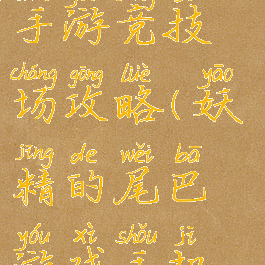 手游竞技
cháng gōng lüè yāo
场攻略(妖
jīng de wěi bā
精的尾巴
yóu xì shǒu jī
游戏手机